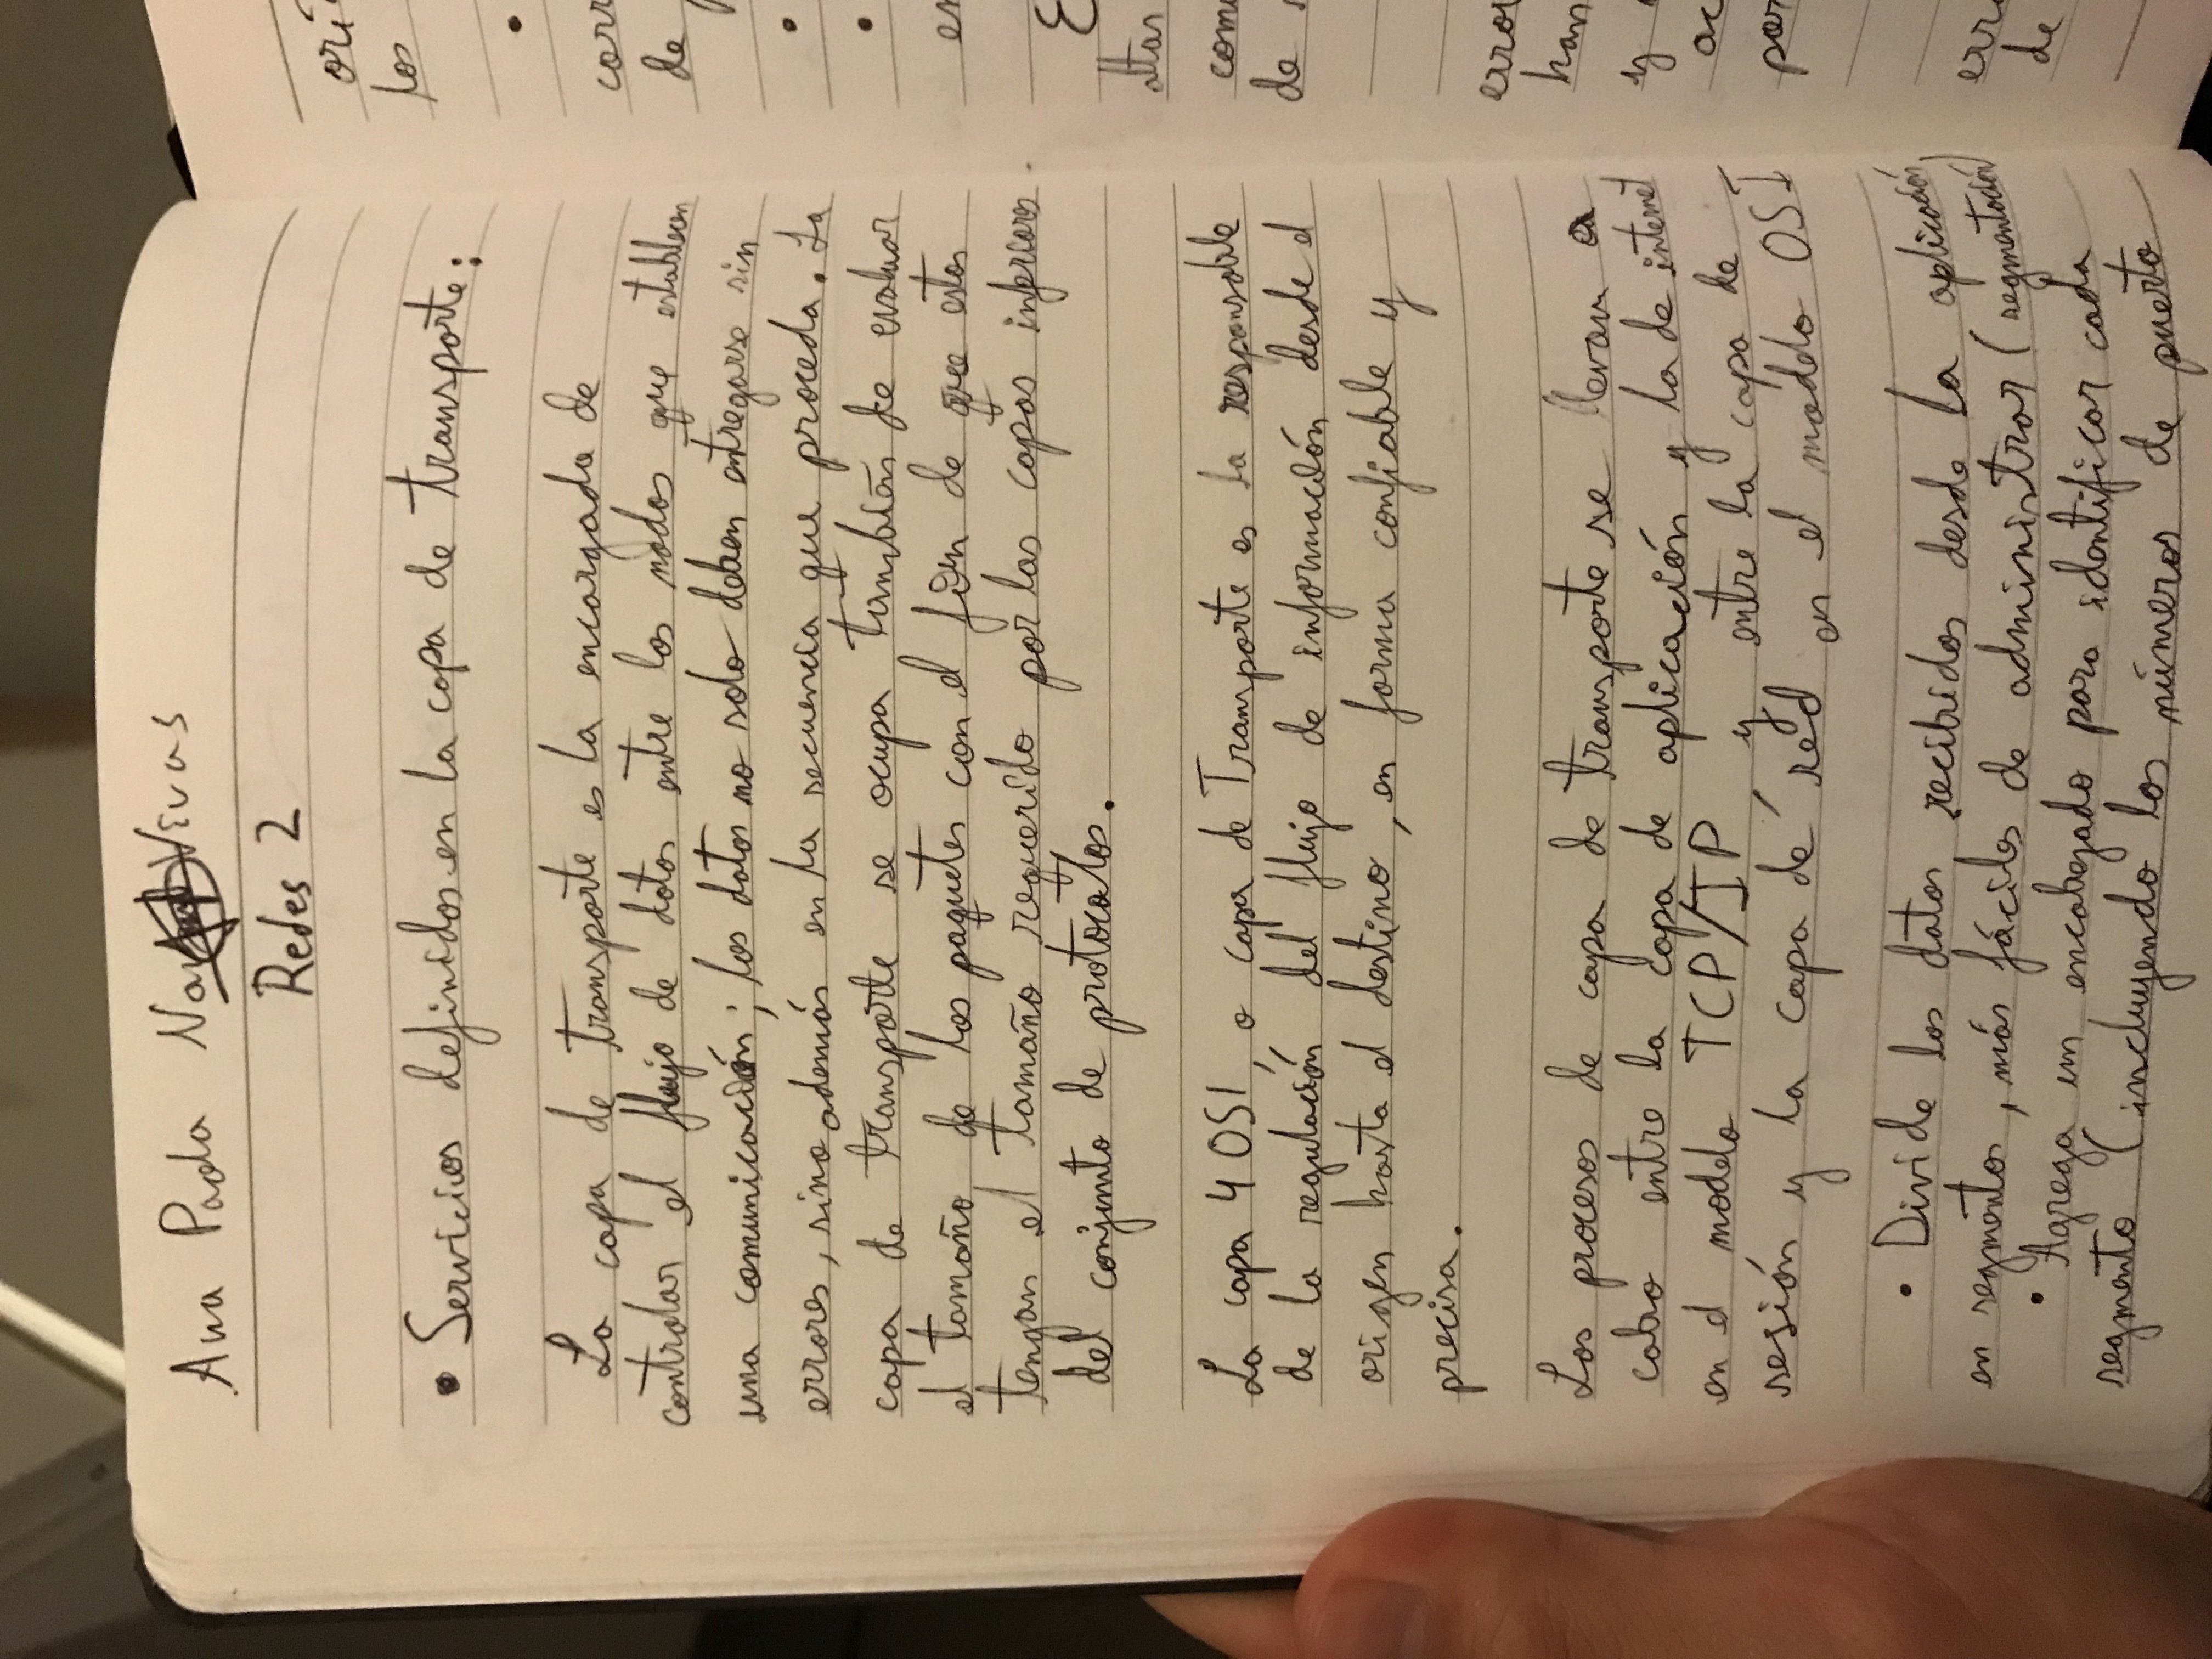 Ana Paola Vivas
Redes 2
• Servicios definidos en la capa de transporte:
La capa de transporte es la encargada de
controlar el flujo de datos entre los nodos que establecen
una comunicación; los datos no solo deben entregarse sin
errores, sino además en la secuencia que proceda. La
capa de transporte se ocupa también de evaluar
el tamaño de los paquetes con el fin de que estos
tengan el tamaño requerido por las capas inferiores
del conjunto de protocolos.
La capa 4 OSI, o capa de Transporte es la responsable
de la regulación del flujo de información desde el
origen hasta el destino, en forma confiable y
precisa.
Los procesos de capa de transporte se llevan a
cabo entre la capa de aplicación y la de internet
en el modelo TCP/IP, y entre la capa de
sesión y la capa de red en el modelo OSI
• Divide los datos recibidos desde la aplicación
en segmentos, más fáciles de administrar (segmentación)
• Agrega un encabezado para identificar cada
segmento (incluyendo los números de puerto
los
•
corr
de
•
•
en
E
altas
com
de
error
han
y
ac
por
err
de